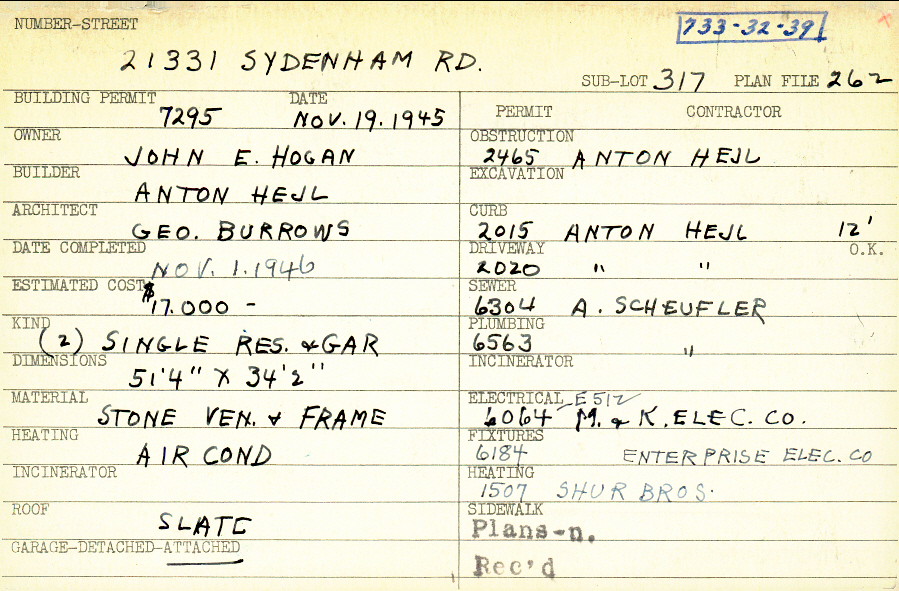 NUMBER-STREET
733-32-39
21331 SYDENHAM RD.
SUB-LOT 317 PLAN FILE 262
BUILDING PERMIT DATE
7295 NOV. 19. 1945
OWNER
JOHN E. HOGAN
BUILDER
ANTON HEJL
ARCHITECT
GEO. BURROWS
DATE COMPLETED
NOV. 1. 1946
ESTIMATED COST
$17.000 -
KIND
(2) SINGLE RES. & GAR
DIMENSIONS
51'4" X 34'2"
MATERIAL
STONE VEN. & FRAME
HEATING
AIR COND
INCINERATOR
ROOF
SLATE
GARAGE-DETACHED-ATTACHED
PERMIT CONTRACTOR
OBSTRUCTION
2465 ANTON HEJL
EXCAVATION
CURB
2015 ANTON HEJL 12'
DRIVEWAY O.K.
2020 " "
SEWER
6304 A. SCHEUFLER
PLUMBING
6563 "
INCINERATOR
ELECTRICAL E 512
6064 M. & K. ELEC. CO.
FIXTURES
6184 ENTERPRISE ELEC. CO
HEATING
1507 SHUR BROS.
SIDEWALK
Plans-n.
Rec'd